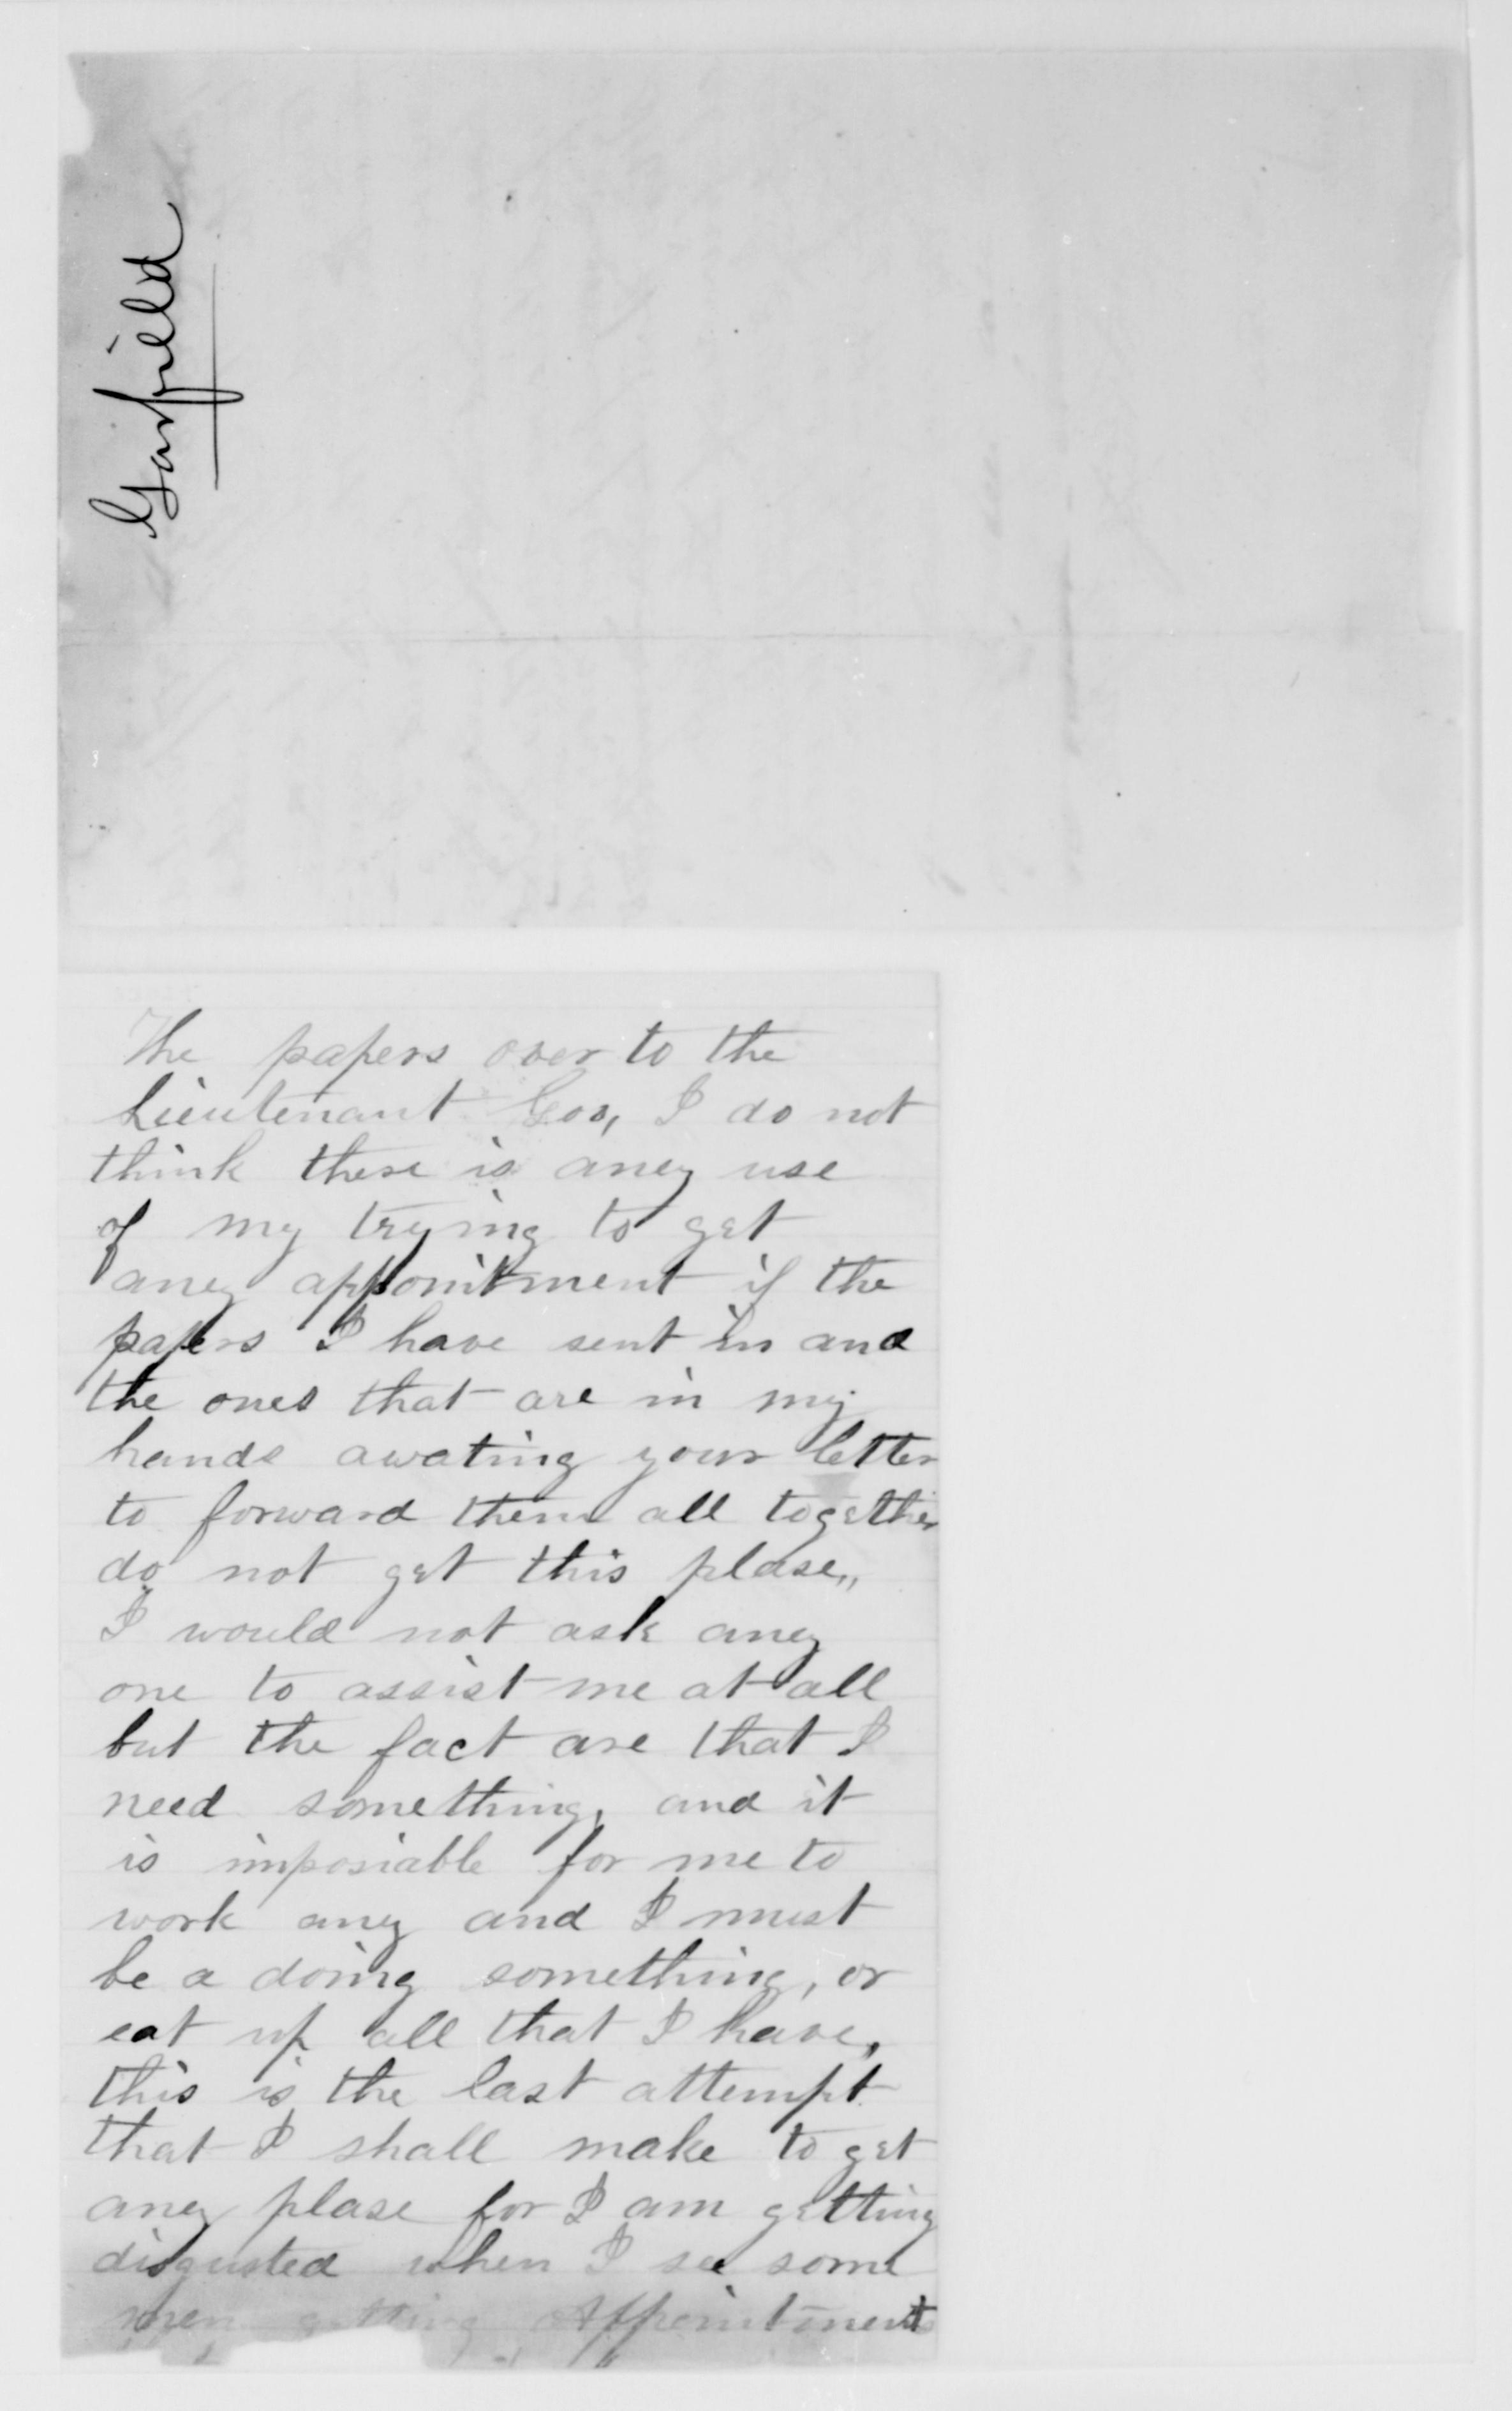 Garfield
The papers over to the
Lieutenant Gov, I do not
think there is aney use
of my trying to get
aney appointment if the
papers I have sent in and
the ones that are in my
hands awating your letter
to forward them all together
do not get this plase,,
I would not ask aney
one to assist me at all
but the fact are that I
need something, and it
is imposiable for me to
work aney and I must
be a doing something, or
eat up all that I have,
this is the last attempt
that I shall make to get
aney plase for I am getting
disgusted when I see some
men getting Appointments